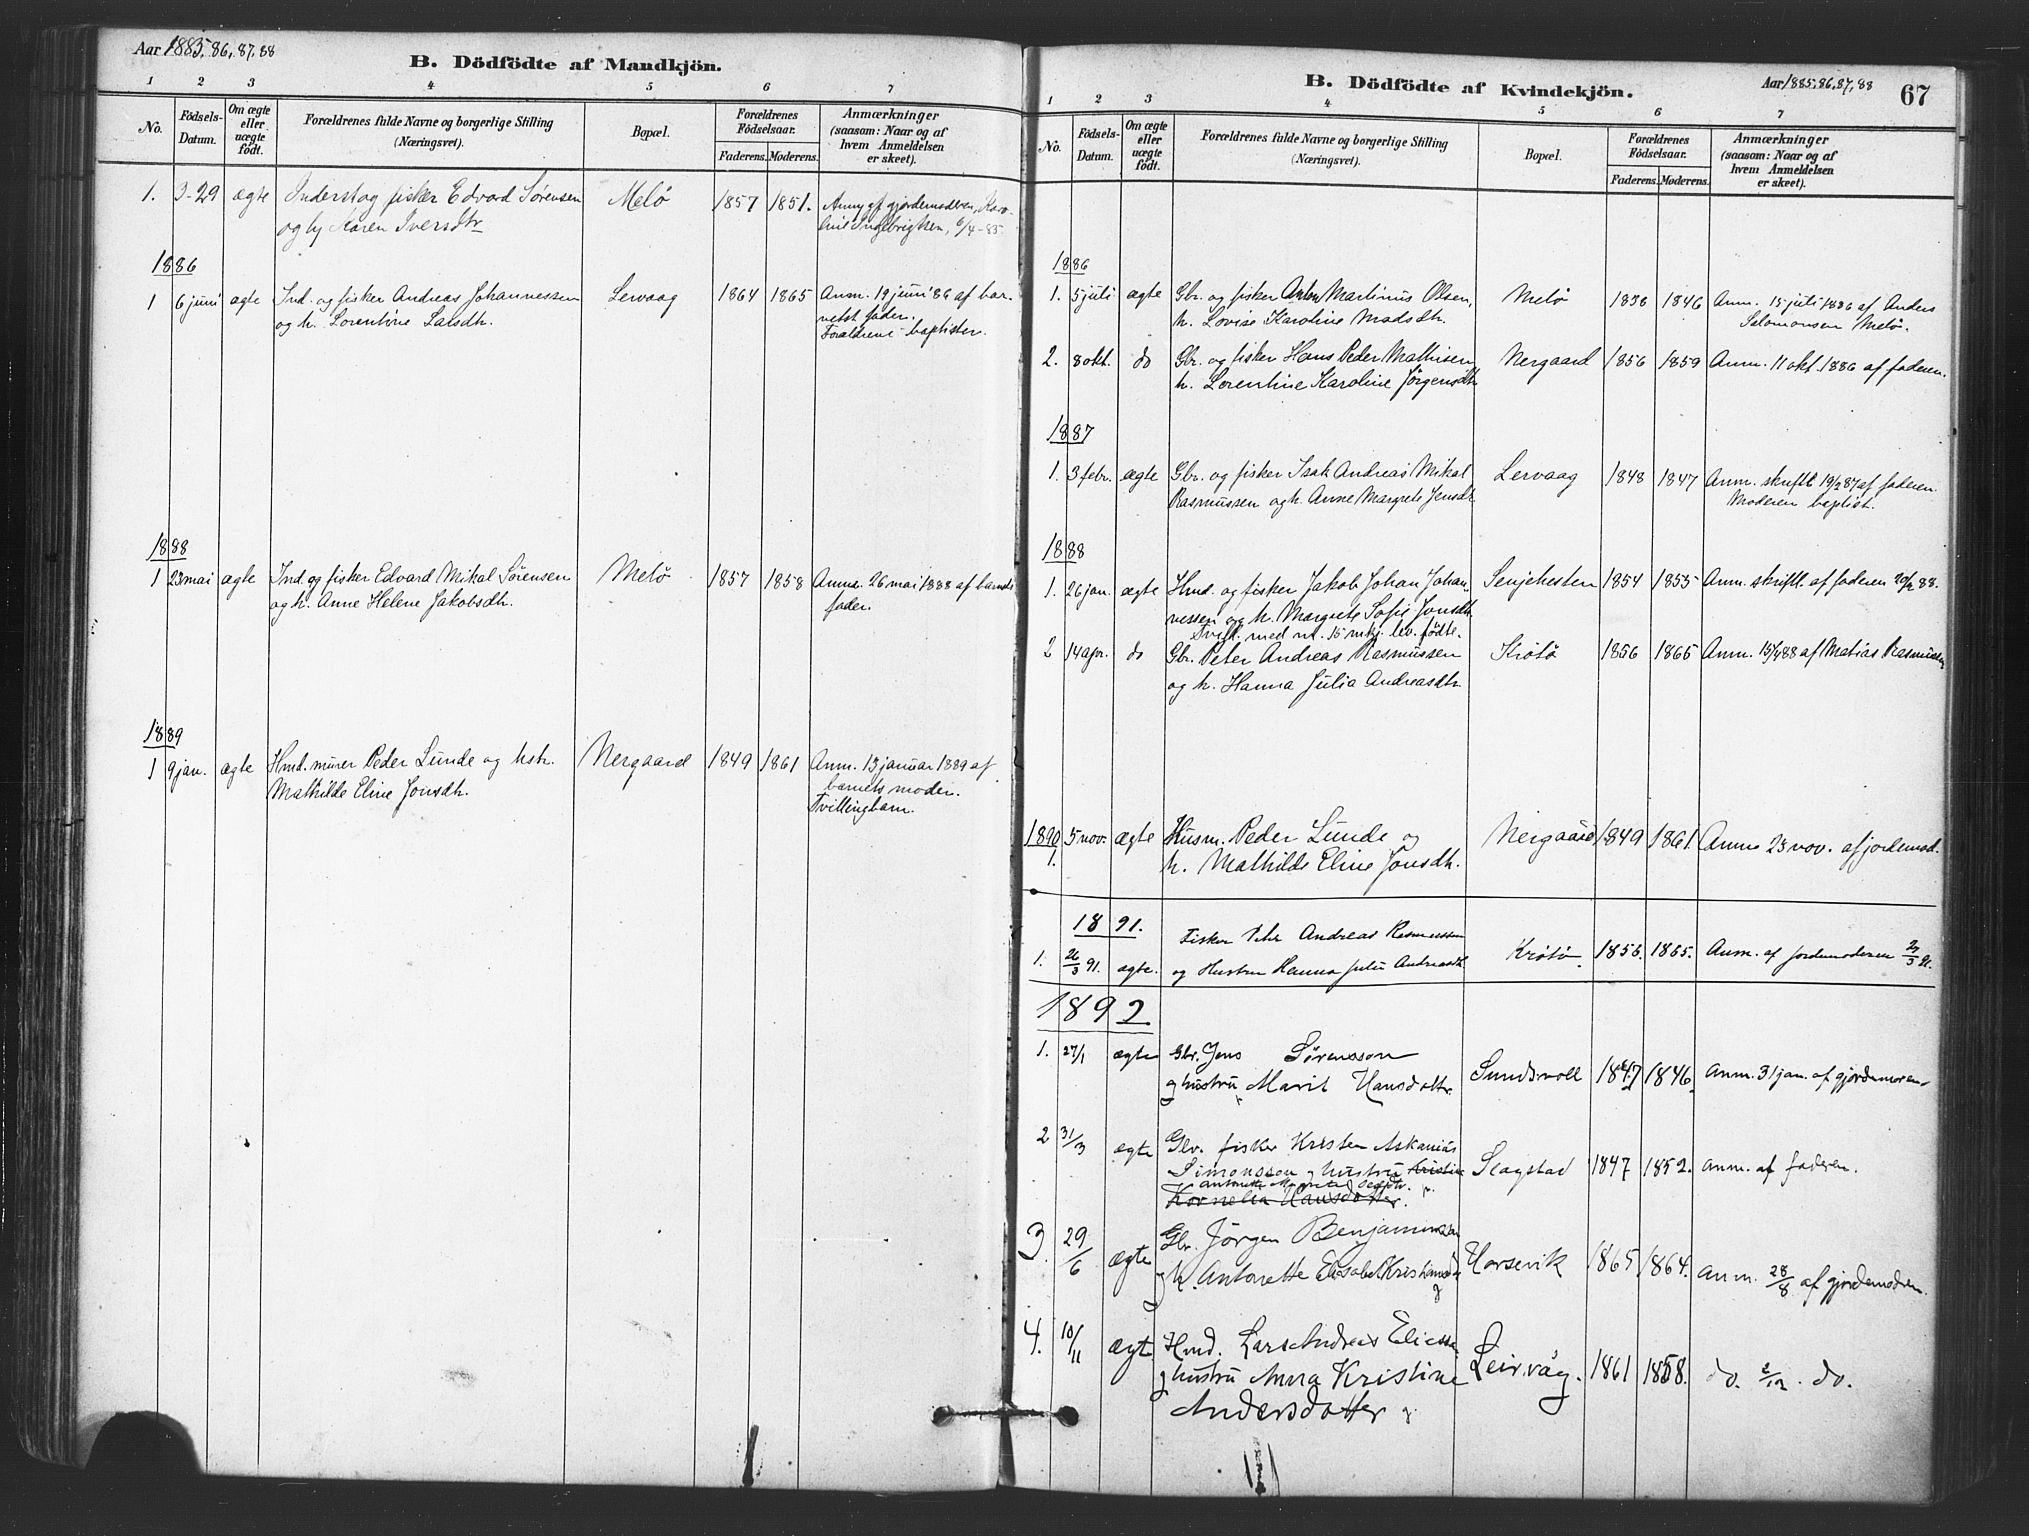 Aar 1885, 86, 87, 88
B. Dödfödte af Mandkjön.
1 2 3 4 5 6 7
No. Födsels-Datum. Om ægte eller uægte födt. Forældrenes fulde Navne og borgerlige Stilling (Næringsvei). Bopæl. Forældrenes Födselsaar. Faderens. Moderens. Anmærkninger (saasom: Naar og af hvem Anmeldelsen er skeet).
1. 3-29 ægte Inderst og fisker Edvard Sørensen Melø 1857 1851. Anm. af gjordemoderen, Karo-
og hu Karen Iversdtr line Ingebrigtsen, 6/4-85.
1886
1 6 juni ægte Ind. og fisker Andreas Johannessen Lervaag 1864 1865 Anm. 19 juni 86 af bar-
og h. Lorentine Larsdtr. nets fader.
Forældrene baptister.
1888
1 23 mai ægte Ind. og fisker Edvard Mikal Sørensen Melø 1857 1858 Anm. 26 mai 1888 af barnets
og h. Anne Helene Jakobsdtr. fader.
1889
1 9 jan. ægte Hmd. murer Peder Lunde og hstr. Nergaard 1849 1861 Anm. 13 januar 1889 af
Mathilde Eline Jonsdtr. barnets moder.
Tvillingbarn.
B. Dödfödte af Kvindekjön.
Aar 1885, 86, 87, 88 67
1 2 3 4 5 6 7
No. Födsels-Datum. Om ægte eller uægte födt. Forældrenes fulde Navne og borgerlige Stilling (Næringsvei). Bopæl. Forældrenes Födselsaar. Faderens. Moderens. Anmærkninger (saasom: Naar og af hvem Anmeldelsen er skeet).
1886
1. 5 juli ægte Gbr. og fisker Anton Martinus Olsen, Melø 1836 1846 Anm. 15 juli 1886 af Anders
h. Lovise Karoline Madsdtr. Salomonsen Melø.
2. 8 okt. do Gbr. og fisker Hans Peder Mathisen Nergaard 1856 1859 Anm. 11 okt. 1886 af faderen.
h. Lorentine Karoline Jørgensdtr
1887
1. 3 febr. ægte Gbr. og fisker Isak Andreas Mikal Lervaag 1848 1847 Anm. skriftl. 19/2 87 af faderen
Rasmussen og h. Anne Margrete Jensdtr Moderen baptist.
1888
1. 26 jan. ægte Hmd. og fisker Jakob Johan Johan- Senjehesten 1854 1855 Anm. skriftl. af faderen 20/2 88.
nessen og h. Margrete Sofie Jonsdtr
Tvill. med nr. 15 mkj. lev. fødte.
2 14 apr. do Gbr. Peter Andreas Rasmussen Krøtø 1856 1865 Anm. 15/4 88 af Matias Rasmussen
og h. Hanna Julia Andreasdtr.
1890 5 nov. ægte Husm. Peder Lunde og Nergaard 1849 1861. Anm. 23 nov. af jordemod.
1. h. Mathilde Eline Jonsdtr.
1891.
Fisker Peter Andreas Rasmussen
1. 26/3 91. ægte. og Hustru Hanna Julie Andreasdtr. Krøtø 1856. 1865. Anm. af Jordemoderen 29/3 91.
1892.
1. 27/1 ægte Gbr. Jens Sørensson
og hustru Marit Hansdotter. Sundsvoll 1847 1846. Anm. 31 jan. af gjordemoren
2 31/3 ægte Gbr. fisker Kristen Askanias
Simonsson og hustru Kristine Slagstad 1847 1852. Anm. af faderen.
Kornelia Hansdotter.
3. 29/6 ægte Gbr. Jørgen Benjaminsen
og h. Antonette Elisabet Kristiansd. Horsevik 1865 1864. Anm. 28/8 af gjordemodren
4. 10/11 ægte Hmd. Lars Andreas Eliass.
og hustru Anna Kristine Leirvåg. 1861 1858. do. 2/12. do.
Andersdotter